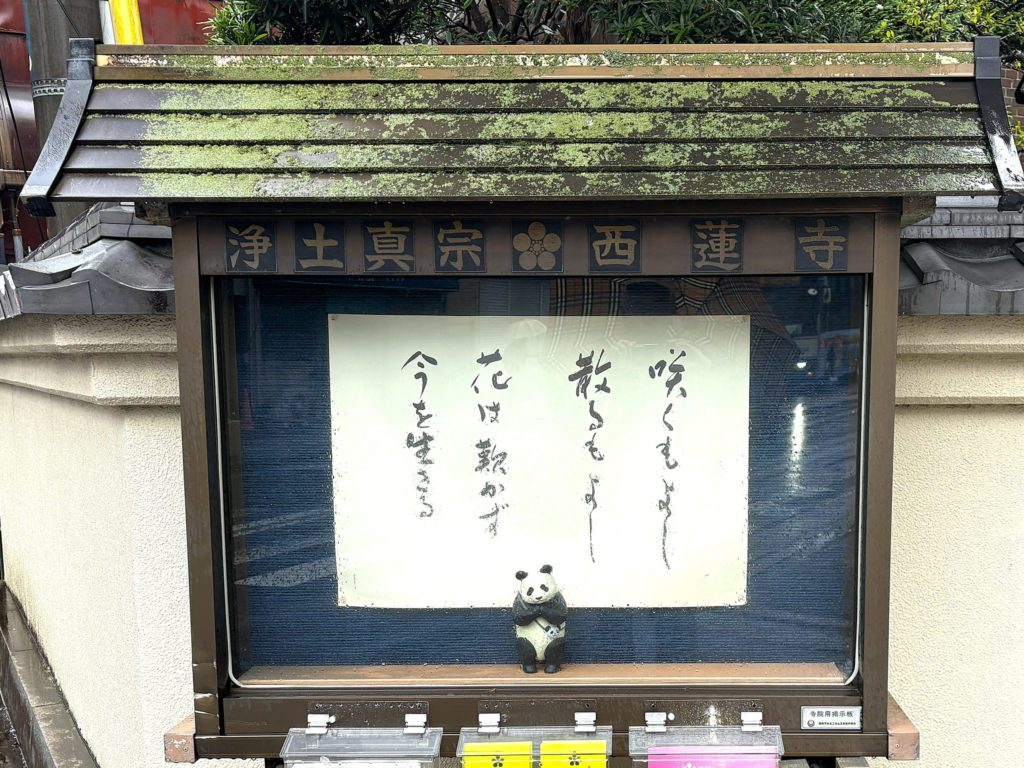 浄土真宗 西蓮寺
咲くもよし
散るもよし
花は歎かず
今を生きる
寺院用掲示板